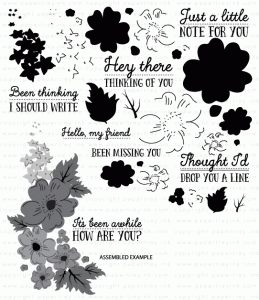 Just a little
NOTE FOR YOU
Hey there
THINKING OF YOU
Been thinking
I SHOULD WRITE
Hello, my friend
BEEN MISSING YOU
Thought I'd
DROP YOU A LINE
It's been awhile
HOW ARE YOU?
ASSEMBLED EXAMPLE